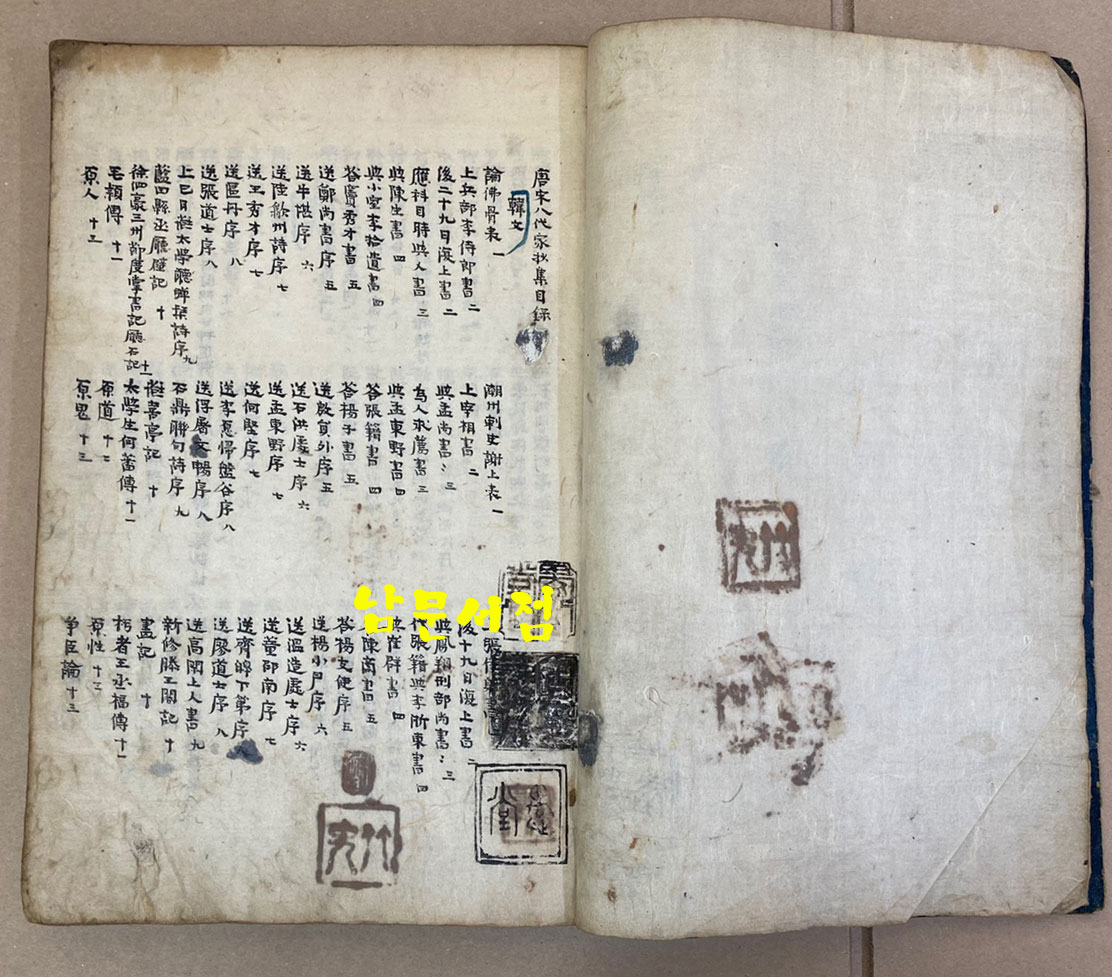 唐宋八代家抄集目錄
韓文
論佛骨表 一 潮州刺史謝上表 一
上兵部李侍郎書 二 上宰相書 二 後十九日復上書 二
後二十九日復上書 二 與孟尚書 三 與鳳翔刑部尚書 三
應科目時與人書 三 為人求薦書 三 代張籍與李浙東書 四
與陳生書 四 與孟東野書 四 與崔群書 四
與小室李拾遺書 四 答張籍書 四 陳商書 五
答竇秀才書 五 答楊子書 五 答楊支使序 五
送鄭尚書序 五 送殷員外序 五 送楊少尹序 六
送牛堪序 六 送石洪處士序 六 送溫造處士序 六
送陸歙州詩序 七 送孟東野序 七 送董邵南序 七
送王秀才序 七 送何堅序 七 送齊皞下第序
送區冊序 八 送李愿歸盤谷序 八 送廖道士序 八
送張道士序 八 送浮屠文暢序 八 送高閑上人書 九
上巳日燕太學聽彈琴詩序 九 石鼎聯句詩序 九 新修滕王閣記 十
藍田縣丞廳壁記 十 燕喜亭記 十 畫記 十
徐泗濠三州節度掌書記廳石記 十一 太學生何蕃傳 十一 圬者王丞福傳 十一
毛穎傳 十一 原道 十二 原性 十三
原人 十三 原鬼 十三 爭臣論 十三
남문서점